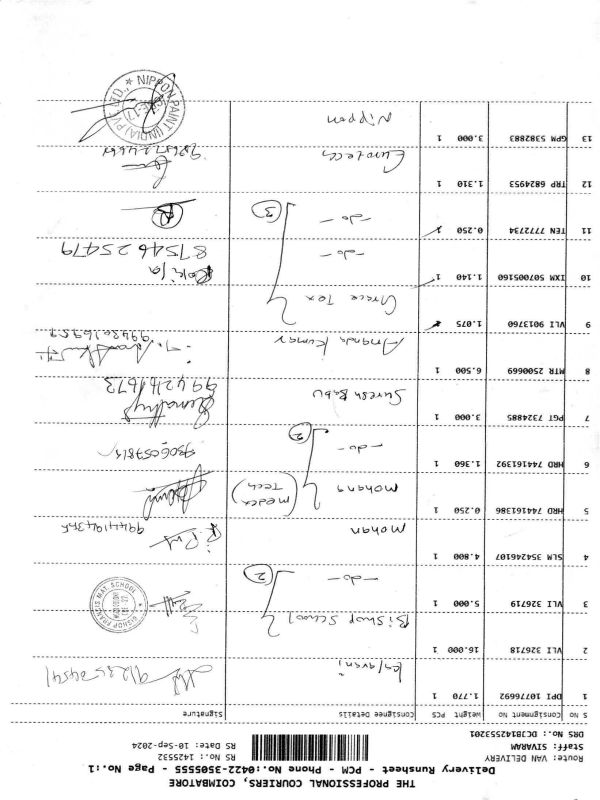 THE PROFESSIONAL COURIERS, COIMBATORE
Delivery Runsheet - PCM - Phone No.:0422-3505555 - Page No.:1
Route: VAN DELIVERY RS No.: 1425532
Staff: SIVARAM RS Date: 10-Sep-2024
DRS No.: DCB142553201
S No Consignment No Weight PCS Consignee Details Signature
1 DPI 10776692 1.770 1 Kalavani
2 VLI 326718 16.000 1 Bishop School
3 VLI 326719 5.000 1 -do- 2
BISHOP FRANCIS MAT. SCHOOL
4 SLM 354246107 4.800 1 mohan
5 HRD 744161386 0.250 1 mohans (medex Tech)
6 HRD 744161392 1.360 1 -do- 2
7 PGT 7324885 3.000 1 Suresh Babu 9942411673
8 MTR 2500669 6.500 1 Ananda Kumar
9 VLI 9013760 1.075 Grace Tex
10 IXM 507005160 1.140 1 -do- 8754625479
11 TEN 7772734 0.250 -do- 3
12 TRP 6824953 1.310 1 Eurotech
13 GPM 5382883 3.000 1 Nippon
NIPPON PAINT (INDIA) PVT. LTD.,